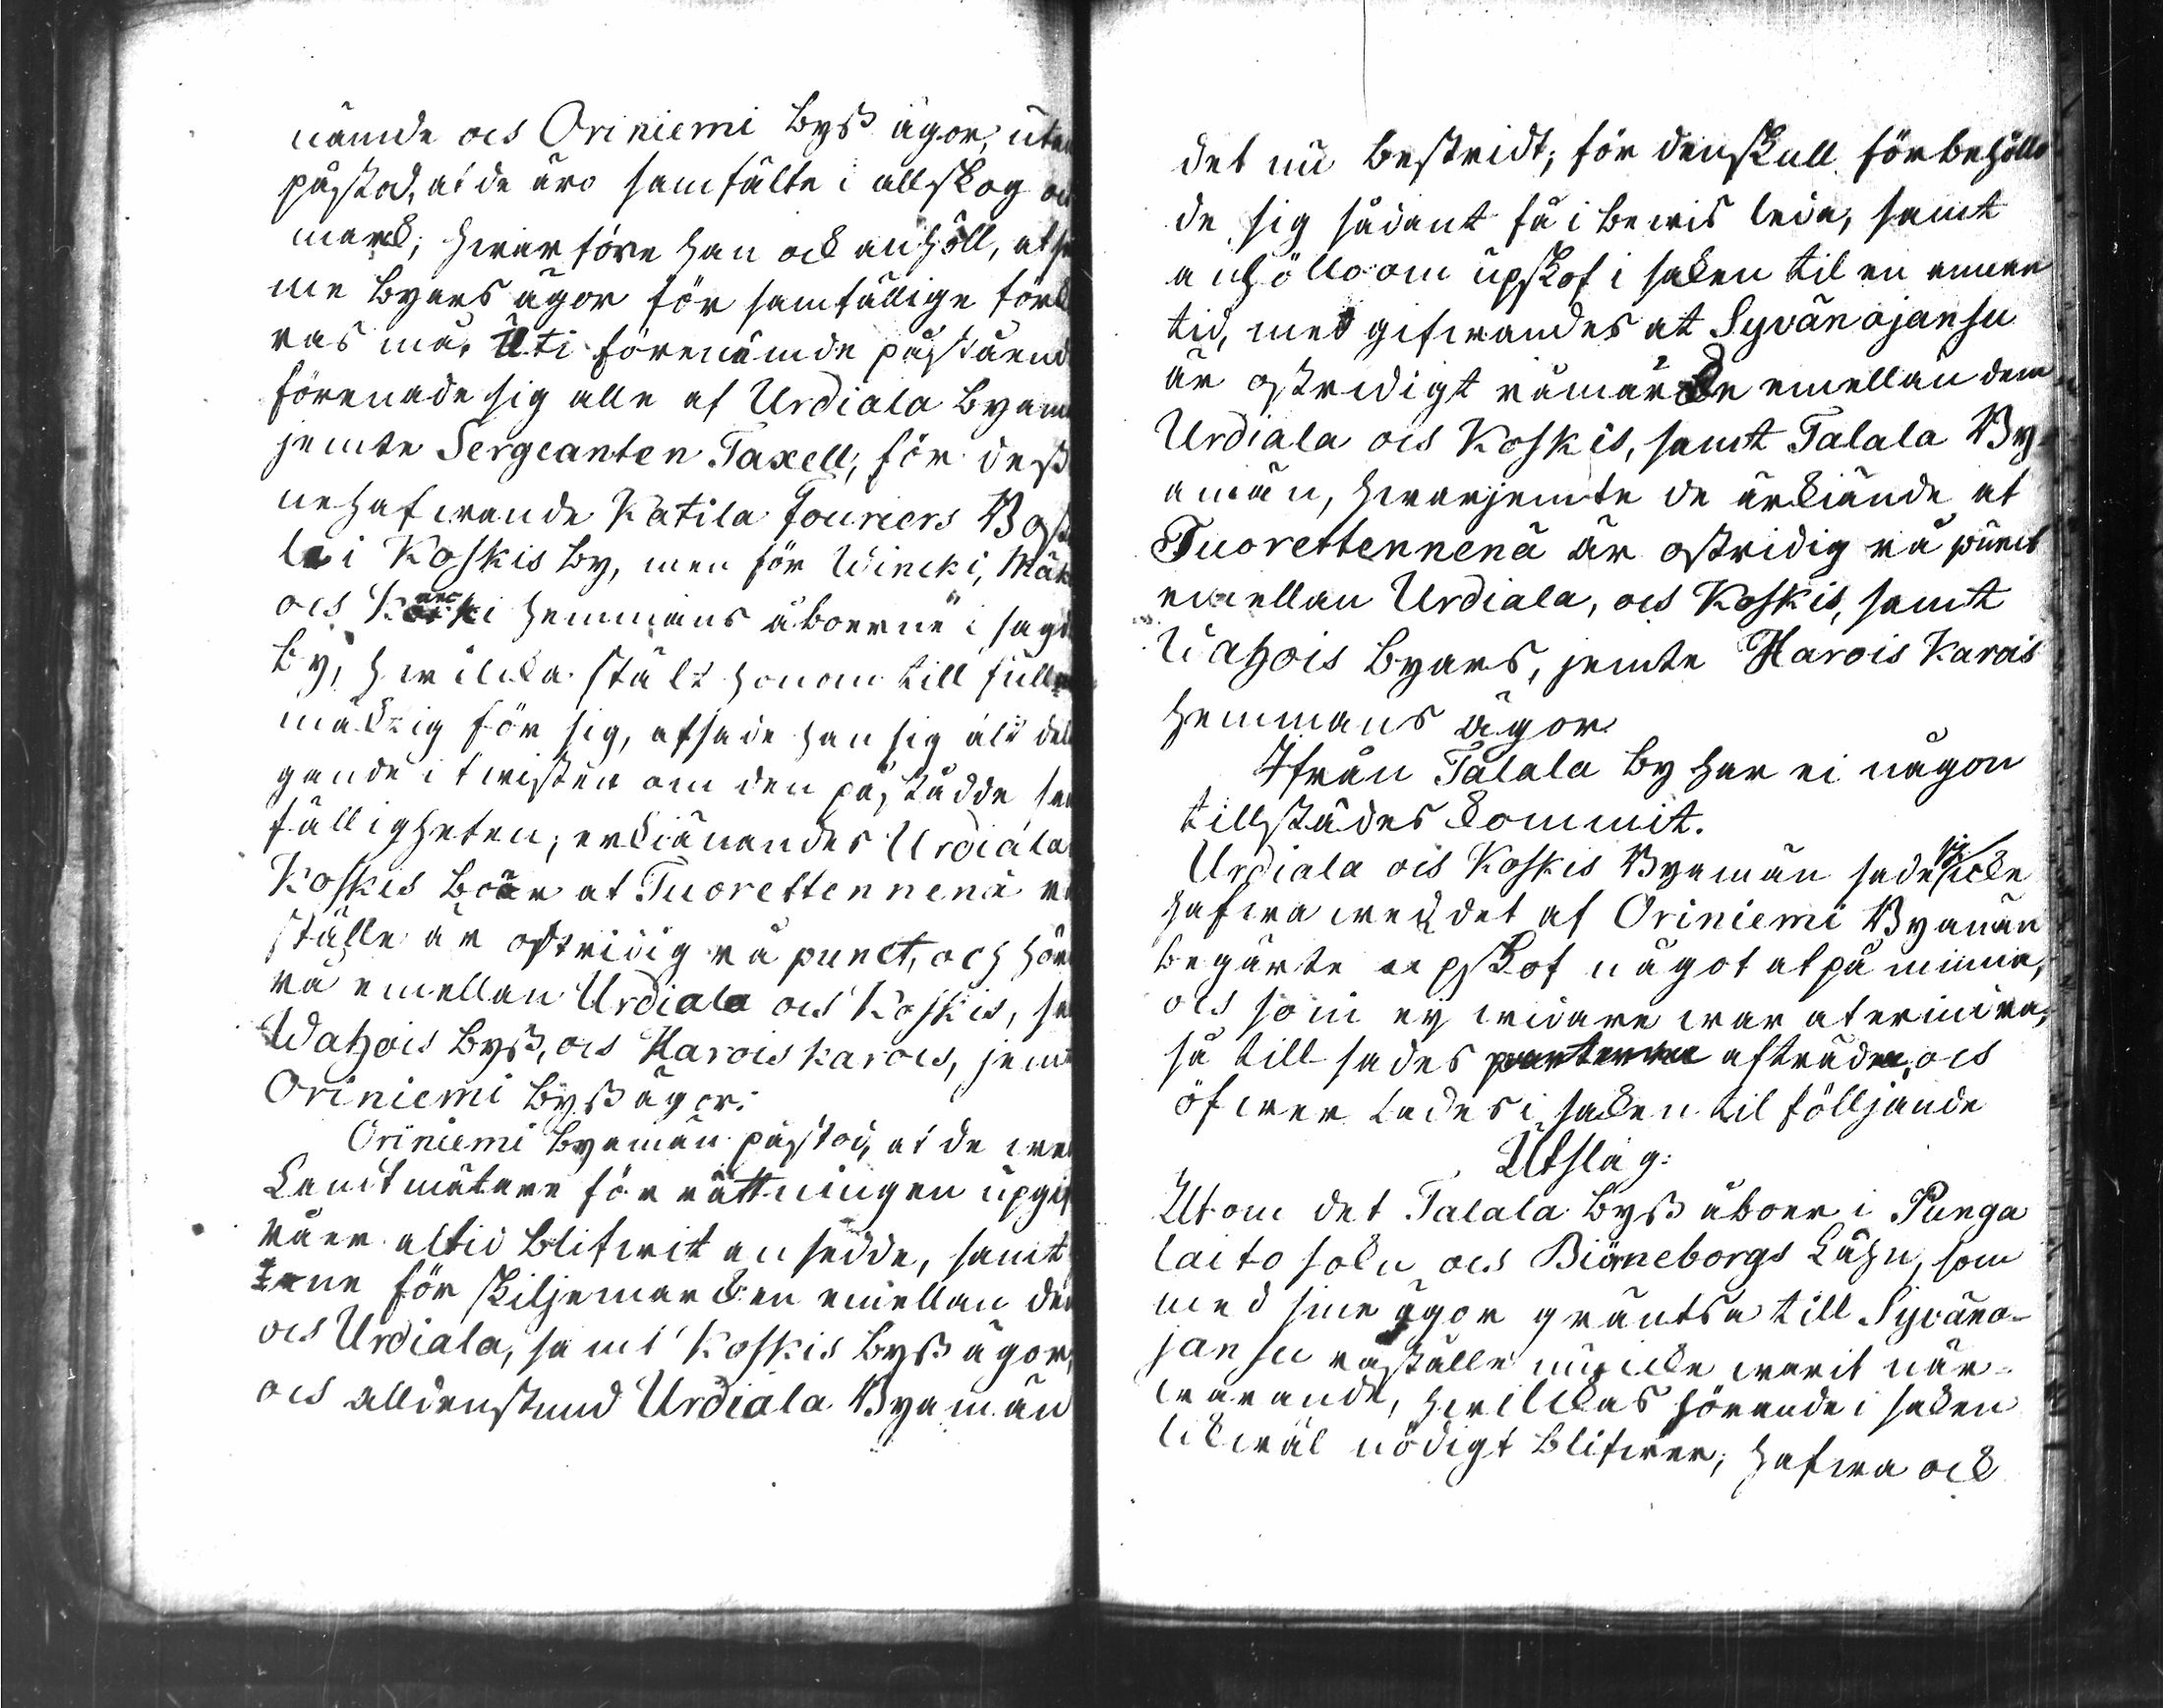 nämde och Oriniemi Byß ägor, utan
påstod, at de äro samfälte i all skog oc
mark; hwarföre han ock anhöll, at sa
me Byars ägor för samfällige förk
ras må. Uti förenämde påståend
förenade sig alle af Urdiala Byam
jemte Sergeanten Taxell, för deß
nehafwande Katila Fouriers Bost
le i Koskis By, men för Wincki, Mäk
och hemmans åboerne i sagd
By, hwilcka stält honom till full
mäcktig för sig, afsade han sig alt del
gande i twisten om den påstådde sam
fälligheten; erkiänandes Urdiala
Koskis Boer at Tuorettennenä rå
ställe är ostridig rå punct, och hörn
rå emellan Urdiala och Koskis, sa
Wahois Byß, och Harois karois, jemt
Oriniemi Byß ägor.
Oriniemi Byamän påstod, at de we
Landtmätare förrättningen upgif
råer altid blifwit ansedde, samt
för skiljemärken emellan den
och Urdiala, samt Koskis Byß ägor,
och alldenstund Urdiala Byamän
det nu bestridt; för denskull förbehöllo
de sig sådant få i bewis leda, samt
anhöllo om upskof i saken til en annan
tid, med gifwandes at Syvänojansu
är ostridigt råmärke emellan dem
Urdiala och Koskis, samt Talala By¬
amän, hwarjemte de ärkiände at
Tuorettennenä är ostridig rå punct
emellan Urdiala, och Koskis, samt
Wahois Byars, jemte Harois Karois
hemmans ägor.
Ifrån Talala By har ei någon
tillstädes kommit.
Urdiala och Koskis Byamän sade sig icke
hafwa wed det af Oriniemi Byamän
begärte upskof något at påminna,
och som ey widare war at erinra,
så till sades parterne afträde, och
öfwer lades i saken til följande
Utslag:
Utom det Talala Byß åboer i Punga
laito sokn och Biörneborgs Lähn, som
med sine ägor gräntsa till Syväno¬
jansu råställe nu icke warit när¬
warande, hwilckas hörande i saken
likwäl nödigt blifwer; hafwa ock